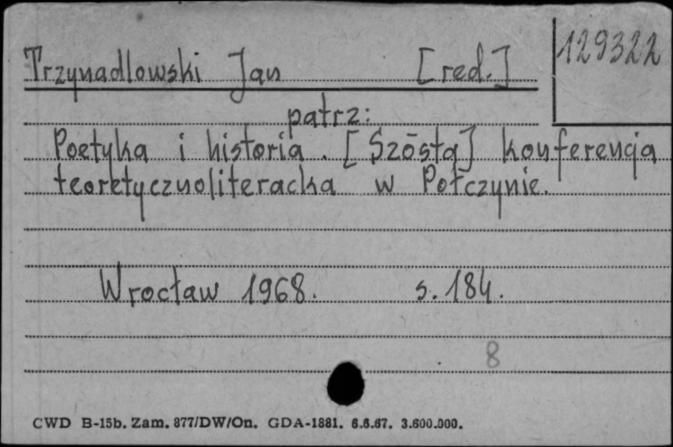 129322
Trzynadlowski Jan [red.]
patrz:
Poetyka i historia. [Szósta] konferencja
teoretycznoliteracka w Połczynie.
Wrocław 1968. s. 184.
8
CWD B-15b. Zam. 877/DW/On. GDA-1881. 6.6.67. 3.600.000.